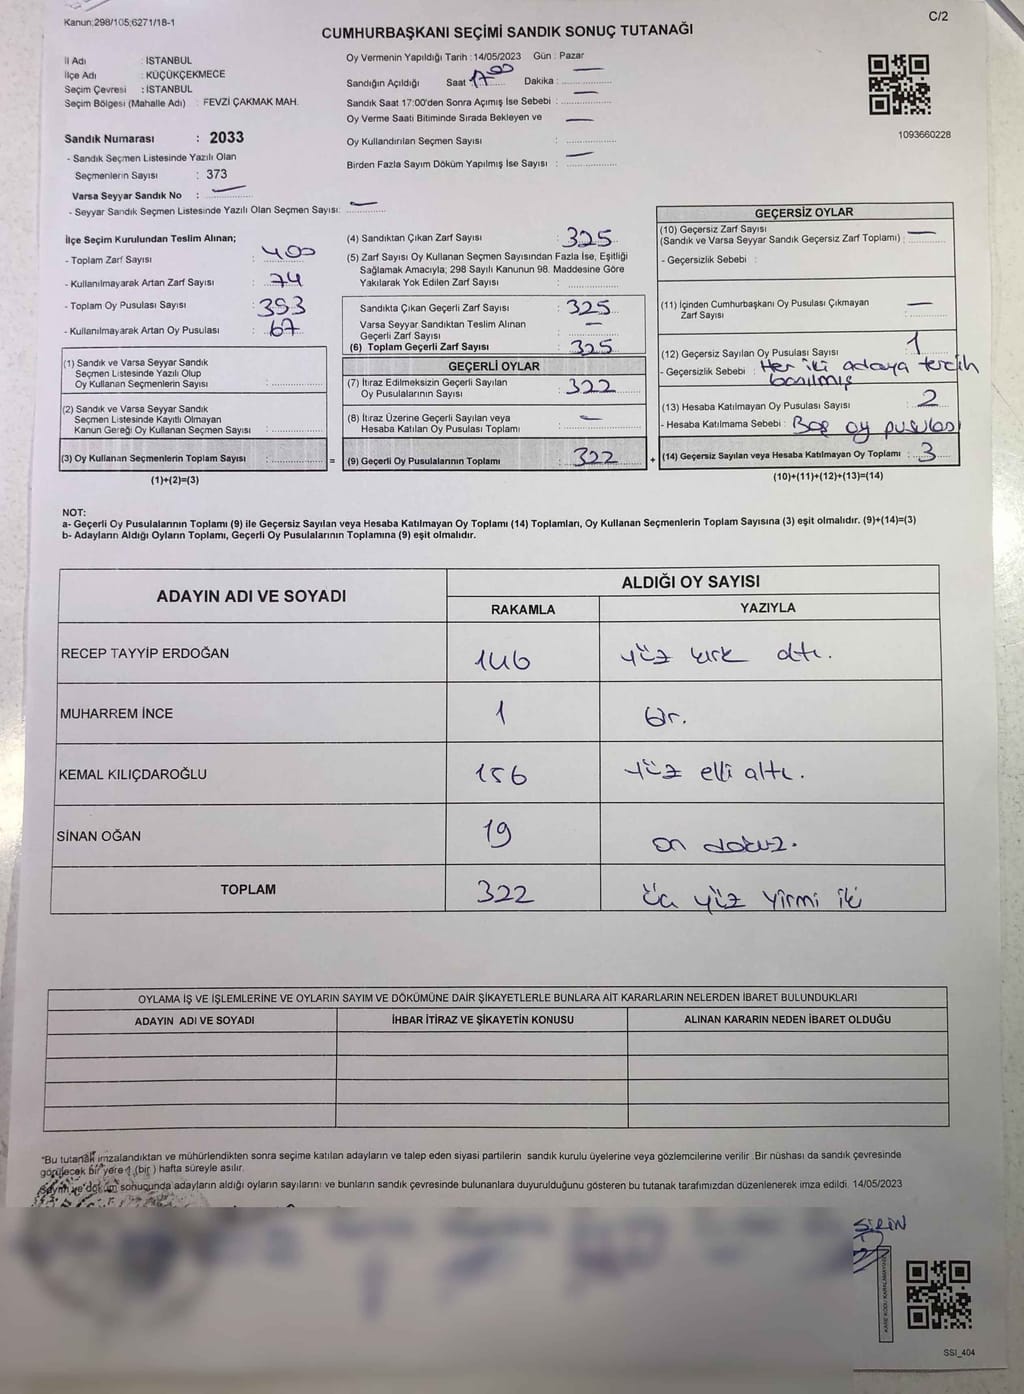 Kanun:298/105;6271/18-1
C/2
CUMHURBAŞKANI SEÇİMİ SANDIK SONUÇ TUTANAĞI
İl Adı : İSTANBUL
İlçe Adı : KÜÇÜKÇEKMECE
Seçim Çevresi : İSTANBUL
Seçim Bölgesi (Mahalle Adı) : FEVZİ ÇAKMAK MAH.
Sandık Numarası : 2033
- Sandık Seçmen Listesinde Yazılı Olan
Seçmenlerin Sayısı : 373
Varsa Seyyar Sandık No : —
- Seyyar Sandık Seçmen Listesinde Yazılı Olan Seçmen Sayısı: —
Oy Vermenin Yapıldığı Tarih : 14/05/2023 Gün : Pazar
Sandığın Açıldığı Saat 17 00 Dakika : —
Sandık Saat 17:00'den Sonra Açımış İse Sebebi : —
Oy Verme Saati Bitiminde Sırada Bekleyen ve —
Oy Kullandırılan Seçmen Sayısı :
Birden Fazla Sayım Döküm Yapılmış İse Sayısı : —
1093660228
İlçe Seçim Kurulundan Teslim Alınan;
- Toplam Zarf Sayısı : 400
- Kullanılmayarak Artan Zarf Sayısı : 74
- Toplam Oy Pusulası Sayısı : 393
- Kullanılmayarak Artan Oy Pusulası : 67
(1) Sandık ve Varsa Seyyar Sandık
Seçmen Listesinde Yazılı Olup
Oy Kullanan Seçmenlerin Sayısı :
(2) Sandık ve Varsa Seyyar Sandık
Seçmen Listesinde Kayıtlı Olmayan
Kanun Gereği Oy Kullanan Seçmen Sayısı :
(3) Oy Kullanan Seçmenlerin Toplam Sayısı : =
(1)+(2)=(3)
(4) Sandıktan Çıkan Zarf Sayısı : 325
(5) Zarf Sayısı Oy Kullanan Seçmen Sayısından Fazla İse, Eşitliği
Sağlamak Amacıyla; 298 Sayılı Kanunun 98. Maddesine Göre
Yakılarak Yok Edilen Zarf Sayısı :
Sandıkta Çıkan Geçerli Zarf Sayısı : 325
Varsa Seyyar Sandıktan Teslim Alınan —
Geçerli Zarf Sayısı :
(6) Toplam Geçerli Zarf Sayısı : 325
GEÇERLİ OYLAR
(7) İtiraz Edilmeksizin Geçerli Sayılan : 322
Oy Pusulalarının Sayısı
(8) İtiraz Üzerine Geçerli Sayılan veya —
Hesaba Katılan Oy Pusulası Toplamı :
(9) Geçerli Oy Pusulalarının Toplamı : 322 +
GEÇERSİZ OYLAR
(10) Geçersiz Zarf Sayısı —
(Sandık ve Varsa Seyyar Sandık Geçersiz Zarf Toplamı) :
- Geçersizlik Sebebi :
(11) İçinden Cumhurbaşkanı Oy Pusulası Çıkmayan —
Zarf Sayısı :
(12) Geçersiz Sayılan Oy Pusulası Sayısı : 1
- Geçersizlik Sebebi : Her iki adaya tercih
basılmış
(13) Hesaba Katılmayan Oy Pusulası Sayısı : 2
- Hesaba Katılmama Sebebi : Boş oy pusulası
(14) Geçersiz Sayılan veya Hesaba Katılmayan Oy Toplamı : 3
(10)+(11)+(12)+(13)=(14)
NOT:
a- Geçerli Oy Pusulalarının Toplamı (9) ile Geçersiz Sayılan veya Hesaba Katılmayan Oy Toplamı (14) Toplamları, Oy Kullanan Seçmenlerin Toplam Sayısına (3) eşit olmalıdır. (9)+(14)=(3)
b- Adayların Aldığı Oyların Toplamı, Geçerli Oy Pusulalarının Toplamına (9) eşit olmalıdır.
ADAYIN ADI VE SOYADI ALDIĞI OY SAYISI
RAKAMLA YAZIYLA
RECEP TAYYİP ERDOĞAN 146 yüz kırk altı.
MUHARREM İNCE 1 Bir.
KEMAL KILIÇDAROĞLU 156 yüz elli altı.
SİNAN OĞAN 19 on dokuz.
TOPLAM 322 üç yüz yirmi iki
OYLAMA İŞ VE İŞLEMLERİNE VE OYLARIN SAYIM VE DÖKÜMÜNE DAİR ŞİKAYETLERLE BUNLARA AİT KARARLARIN NELERDEN İBARET BULUNDUKLARI
ADAYIN ADI VE SOYADI İHBAR İTİRAZ VE ŞİKAYETİN KONUSU ALINAN KARARIN NEDEN İBARET OLDUĞU
*Bu tutanak imzalandıktan ve mühürlendikten sonra seçime katılan adayların ve talep eden siyasi partilerin sandık kurulu üyelerine veya gözlemcilerine verilir .Bir nüshası da sandık çevresinde
görülecek bir yere 1 (bir ) hafta süreyle asılır.
Sayım ve döküm sonucunda adayların aldığı oyların sayılarını ve bunların sandık çevresinde bulunanlara duyurulduğunu gösteren bu tutanak tarafımızdan düzenlenerek imza edildi. 14/05/2023
SİRİN
SSI_404